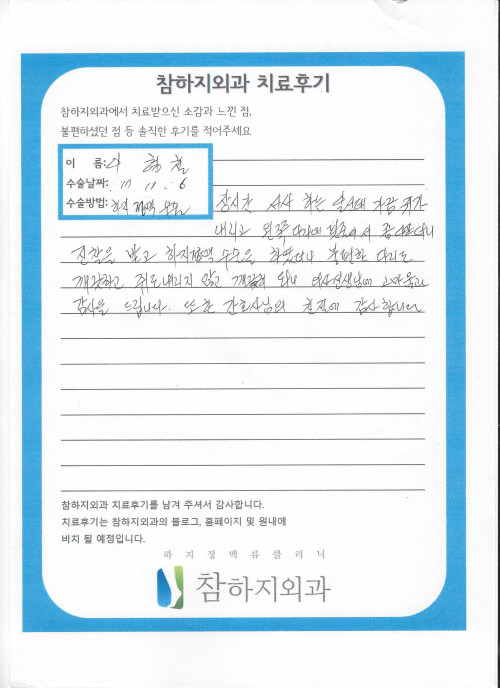 참하지외과 치료후기
참하지외과에서 치료받으신 소감과 느낀 점,
불편하셨던 점 등 솔직한 후기를 적어주세요
이 름:
수술날짜: 17 11. 6
수술방법: 하지정맥 수술
장시간 서서 하는 가끔 쥐가
내리고 왼쪽 다리에
진찰을 받고 하지정맥 수술을 하였더니 불편한 다리도
깨끗하고 쥐도 내리지 않고 의사선생님께 고마움과
감사를 드립니다. 또한 간호사님의 친절에 감사합니다
참하지외과 치료후기를 남겨 주셔서 감사합니다.
치료후기는 참하지외과의 블로그, 홈페이지 및 원내에
비치 될 예정입니다.
하지정맥류클리닉
참하지외과